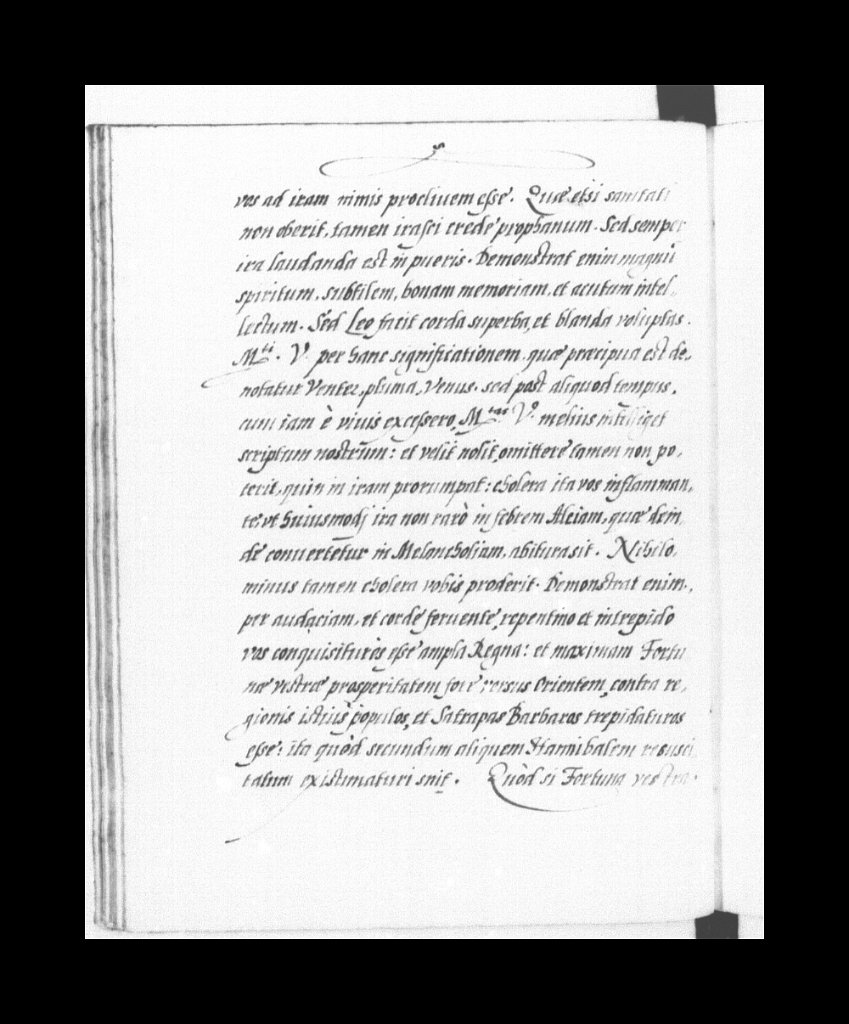 vos ad iram nimis procliuem esse. Quæ etsi sanitati
non oberit, tamen irasci crede prophanum. Sed semper
ira laudanda est in pueris. Demonstrat enim magnū
spiritum, subtilem, bonam memoriam, et acutum intel,
lectum. Sed Leo facit corda superba, et blanda voluptas.
M.ti. V. per hanc significationem, quæ præcipua est de,
notatur Venter, pluma, Venus. sed post aliquod tempus,
cum iam è viuis excessero, M.tas V. melius intelliget
scriptum nostrum: et velit nolit, omittere tamen non po,
terit, quin in iram prorumpat: cholera ita vos inflamman,
te, vt huiusmodj ira non rarò in febrem Aleiam, quæ dein,
de conuertetur in Melancholiam, abitura sit. Nihilo,
minus tamen cholera vobis proderit. Demonstrat enim,
per audaciam, et corde feruente, repentino et intrepido
vos conquisiturũs esse ampla Regna: et maximam Fortu
næ vestræ prosperitatem fore versus Orientem, contra re,
gionis istius populos, et Satrapas Barbaros trepidaturos
esse: ita quòd secundum aliquem Hannibalem resusci
tatum existimaturi sint. Quòd si Fortuna vestra